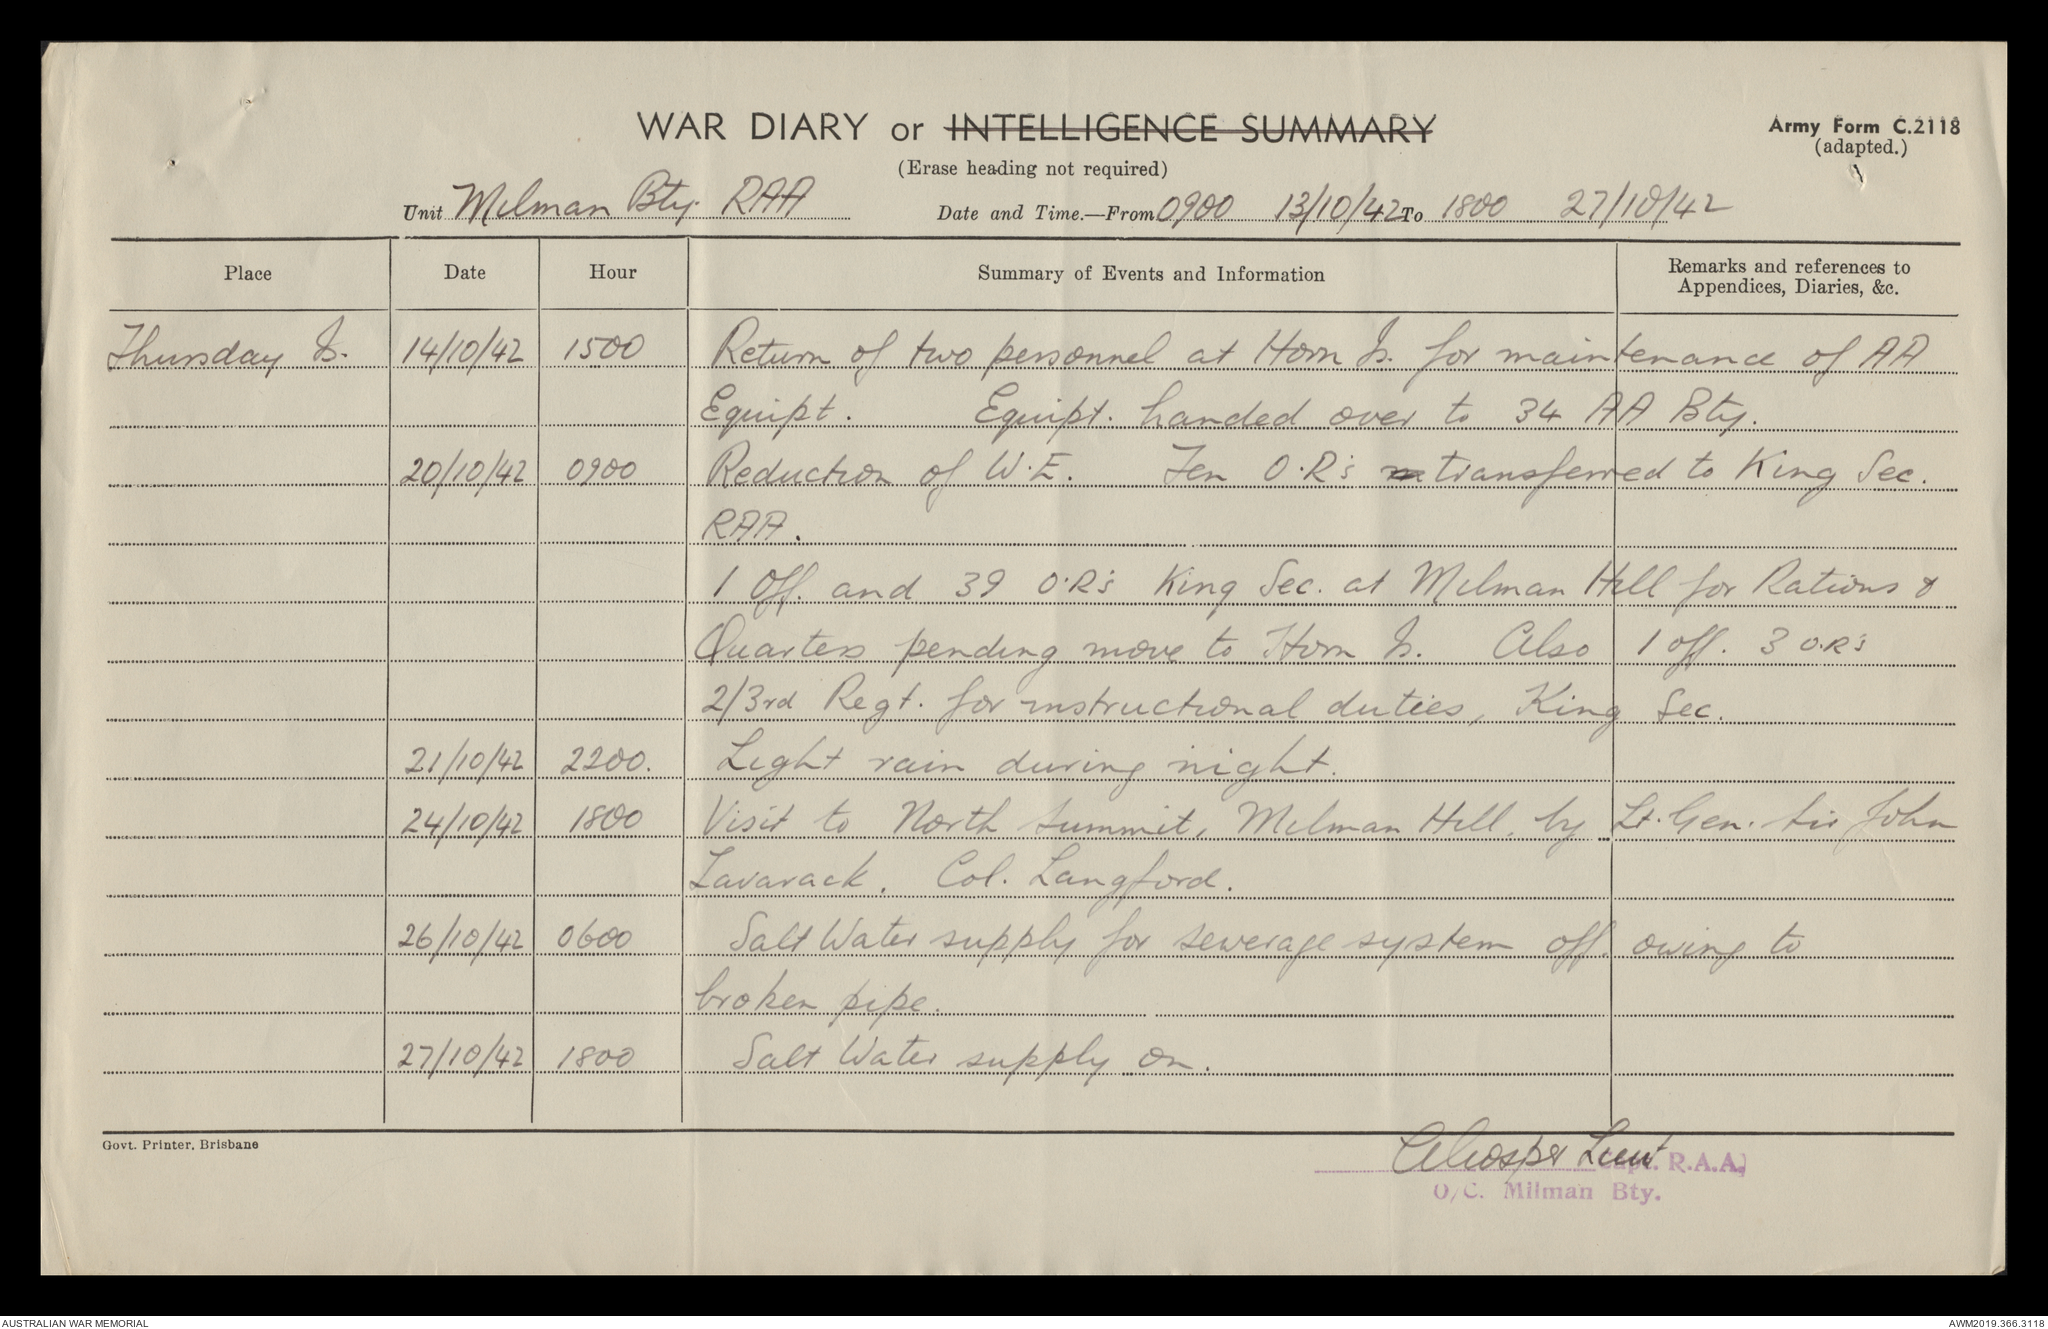 WAR DIARY or INTELLIGENCE SUMMARY
Army Form C.2118
(adapted.)
(Erase heading not required)
Unit Milman Bty. RAA Date and Time.—From 0900 13/10/42 To 1800 27/10/42
Place Date Hour Summary of Events and Information Remarks and references to
Appendices, Diaries, &c.
Thursday Is. 14/10/42 1500 Return of two personnel at Horn Is. for maintenance of AA
Equipt. Equipt. handed over to 34 AA Bty.
20/10/42 0900 Reduction of W.E. Ten O.R's transferred to King Sec.
RAA.
1 Off. and 39 O.R's King Sec. at Milman Hill for Rations &
Quarters pending move to Horn Is. Also 1 off. 3 O.R's
2/3rd Regt. for instructional duties, King Sec.
21/10/42 2200. Light rain during night.
24/10/42 1800 Visit to North Summit, Milman Hill, by Lt. Gen. Sir John
Lavarack. Col. Langford.
26/10/42 0600 Salt Water supply for sewerage system off. owing to
broken pipe.
27/10/42 1800 Salt Water supply on.
Govt. Printer, Brisbane
Lieut Capt. R.A.A.
O/C. Milman Bty.
AUSTRALIAN WAR MEMORIAL
AWM2019.366.3118